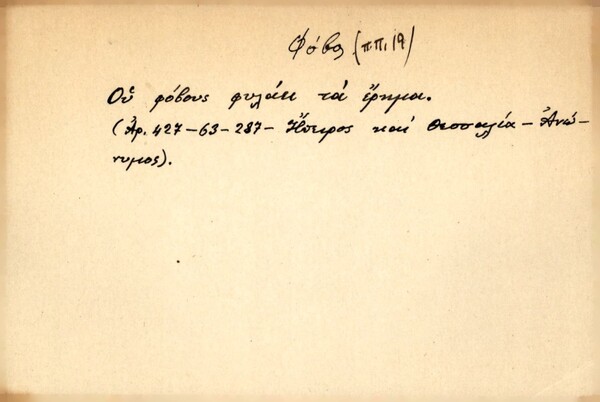 Φόβος (π.π. 19)
Οὗ φόβους φυλάει τά ἔρημα.
(Ἀρ. 427-63-287- Ἤπειρος καί Θεσσαλία - Ἀνώ-
νυμος).